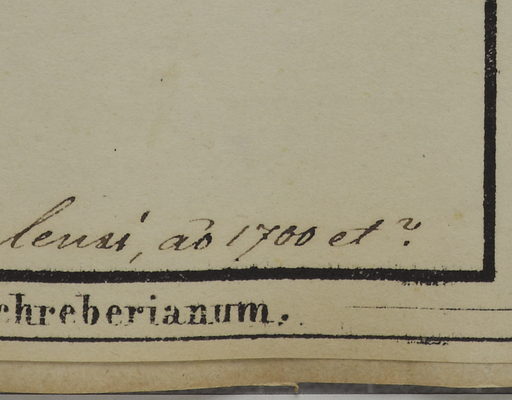 lensi, ao 1700 et ?
chreberianum.